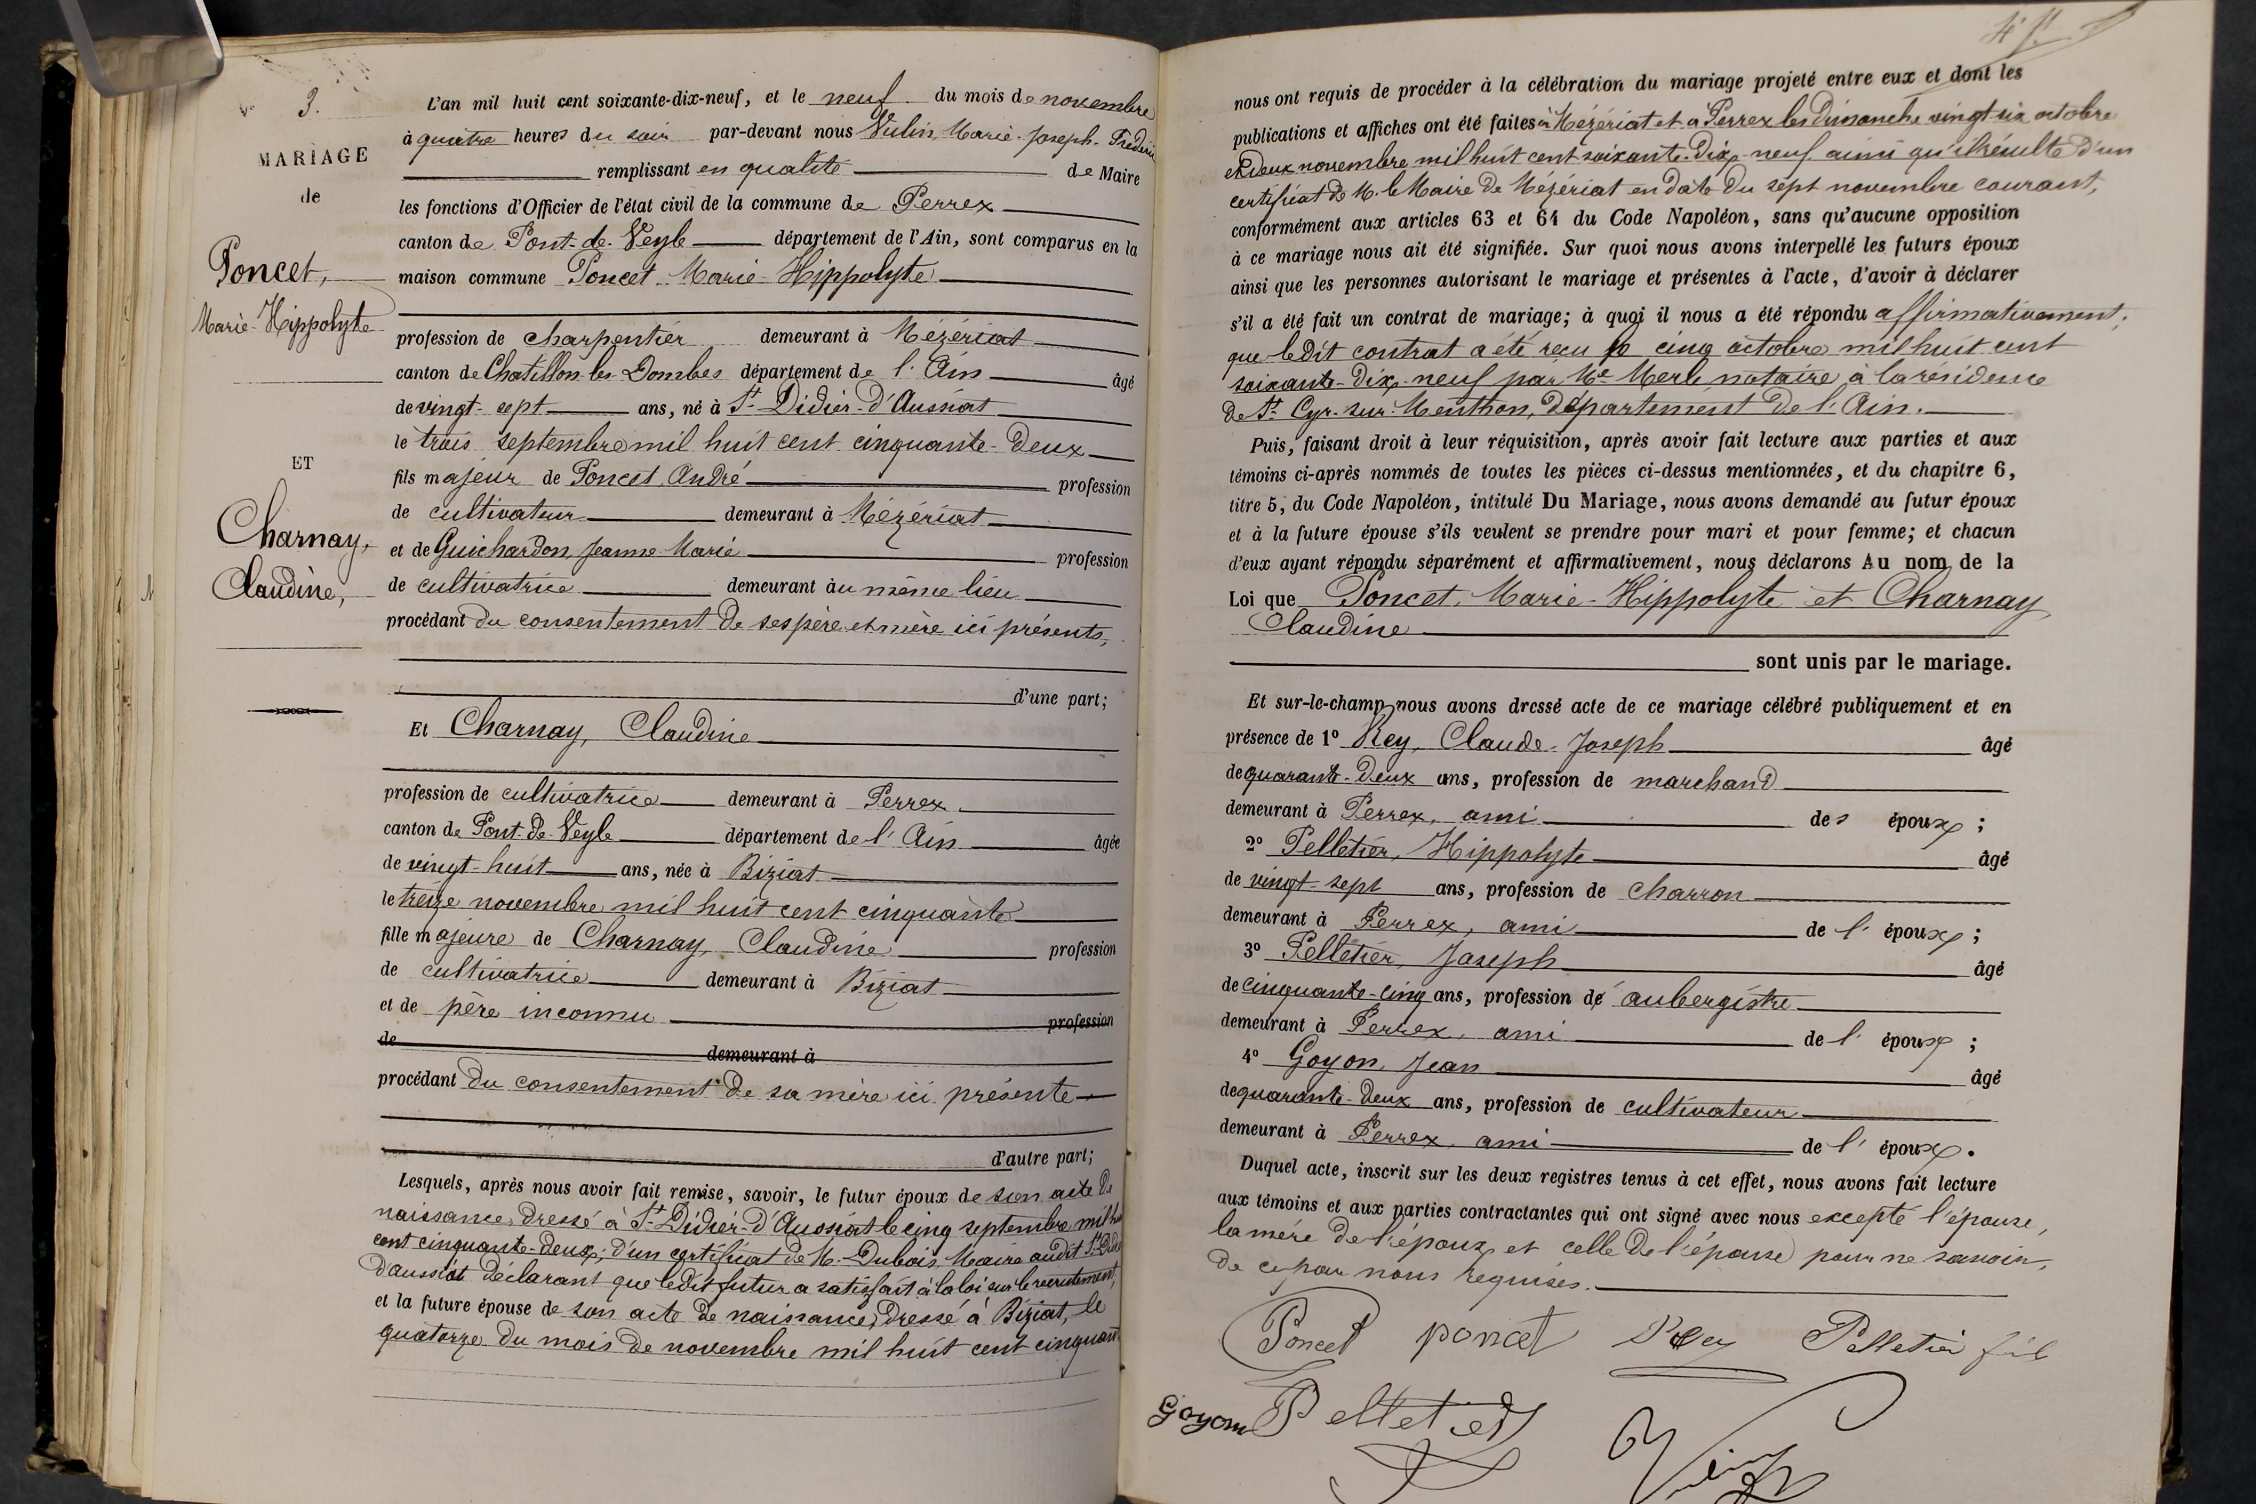 3.
MARIAGE
de
Poncet,
Marie-Hippolyte
ET
Charnay,
Claudine,
L'an mil huit cent soixante-dix-neuf, et le neuf du mois de novembre
à quatre heures du soir par-devant nous Vulin, Marie-Joseph-Fréderic
remplissant en qualité de Maire
les fonctions d'Officier de l'état civil de la commune de Perrex
canton de Pont-de-Veyle département de l'Ain, sont comparus en la
maison commune Poncet Marie-Hippolyte
profession de charpentier demeurant à Mézériat
canton de Chatillon-les-Dombes département de l'Ain âgé
de vingt-sept ans, né à St-Didier-d'Aussiat
le trois septembre mil huit cent cinquante-deux
fils majeur de Poncet André profession
de cultivateur demeurant à Mézériat
et de Guichardon, Jeanne-Marie profession
de cultivatrice demeurant àu même lieu
procédant du consentement de ses père et mère ici présents,
d'une part;
Et Charnay, Claudine
profession de cultivatrice demeurant à Perrex
canton de Pont-de-Veyle département de l'Ain âgée
de vingt-huit ans, née à Biziat
le treize novembre mil huit cent cinquante
fille majeure de Charnay, Claudine profession
de cultivatrice demeurant à Biziat
et de père inconnu profession
de demeurant à
procédant du consentement de sa mère ici présente
d'autre part;
Lesquels, après nous avoir fait remise, savoir, le futur époux de son acte de
naissance, dressé à St-Didier-d'Aussiat le cinq septembre mil huit
cent cinquante-deux; d'un certificat de M. Dubois, Maire audit St-Didier
d'aussiat déclarant que ledit futur a satisfait à la loi sur le recrutement,
et la future épouse de son acte de naissance, dressé à Biziat, le
quatorze du mois de novembre mil huit cent cinquante
nous ont requis de procéder à la célébration du mariage projeté entre eux et dont les
publications et affiches ont été faites à Mézériat et à Perrex les Dimanche vingt-six octobre
et deux novembre mil huit cent soixante-dix-neuf ainsi qu'il résulte d'un
certificat de M. le Maire de Mézériat en date du sept novembre courant,
conformément aux articles 63 et 64 du Code Napoléon, sans qu'aucune opposition
à ce mariage nous ait été signifiée. Sur quoi nous avons interpellé les futurs époux
ainsi que les personnes autorisant le mariage et présentes à l'acte, d'avoir à déclarer
s'il a été fait un contrat de mariage; à quoi il nous a été répondu affirmativement,
que ledit contrat a été reçu le cinq octobre mil huit cent
soixante-dix-neuf par Me Merle notaire à la résidence
de St Cyr-sur-Menthon, département de l'Ain.
Puis, faisant droit à leur réquisition, après avoir fait lecture aux parties et aux
témoins ci-après nommés de toutes les pièces ci-dessus mentionnées, et du chapitre 6,
titre 5, du Code Napoléon, intitulé Du Mariage, nous avons demandé au futur époux
et à la future épouse s'ils veulent se prendre pour mari et pour femme; et chacun
d'eux ayant répondu séparément et affirmativement, nous déclarons Au nom de la
Loi que Poncet, Marie-Hippolyte et Charnay
Claudine
sont unis par le mariage.
Et sur-le-champ nous avons dressé acte de ce mariage célébré publiquement et en
présence de 1º Rey, Claude-Joseph âgé
de quarante-deux ans, profession de marchand
demeurant à Perrex, ami des époux;
2º Pelletier, Hippolyte âgé
de vingt-sept ans, profession de charron
demeurant à Perrex, ami de l'époux;
3º Pelletier, Joseph âgé
de cinquante-cinq ans, profession dé aubergiste
demeurant à Perrex, ami de l'époux;
4º Goyon, Jean âgé
de quarante-deux ans, profession de cultivateur
demeurant à Perrex, ami de l'époux.
Duquel acte, inscrit sur les deux registres tenus à cet effet, nous avons fait lecture
aux témoins et aux parties contractantes qui ont signé avec nous excepté l'épouse,
la mère de l'époux et celle de l'épouse pour ne savoir,
de ce par nous requises.
Poncet poncet Rey Pelletier fils
Goyon Pelletier